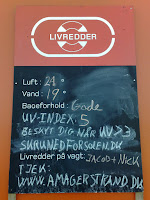 LIVREDDER
Luft: 21°
Vand: 19°
Badeforhold: Gode
UV-INDEX: 5
BESKYT DIG NÅR UV>3
SKRUNEDFORSOLEN.DK
Livredder på vagt: JACOB + NICK
TJEK:
WWW.AMAGERSTRAND.DK